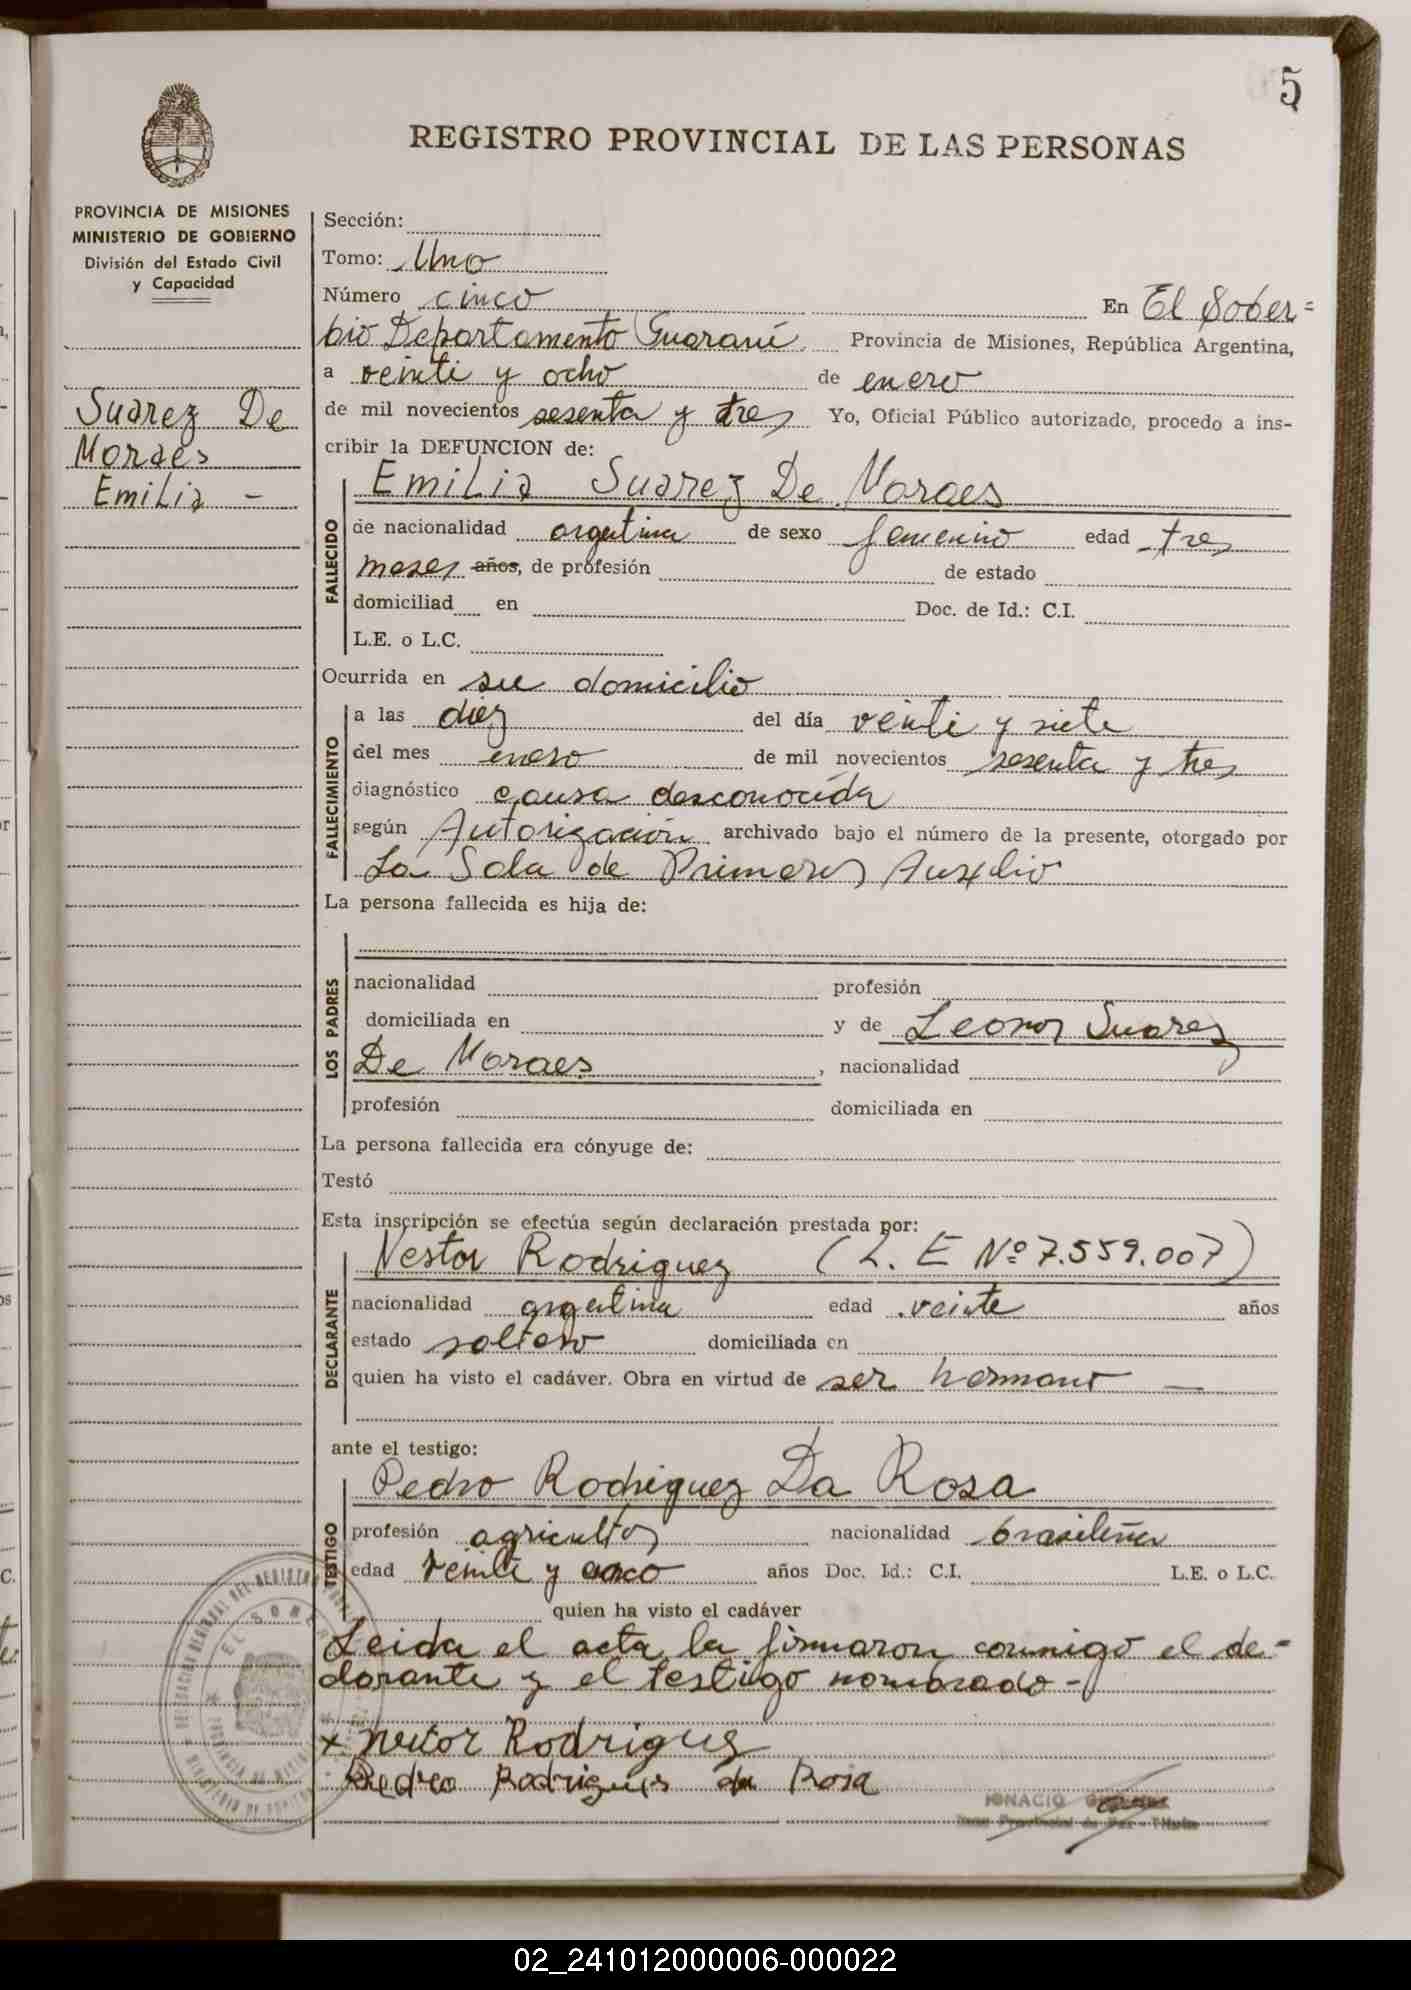 5
REGISTRO PROVINCIAL DE LAS PERSONAS
PROVINCIA DE MISIONES
MINISTERIO DE GOBIERNO
División del Estado Civil
y Capacidad
Suarez De
Moraes
Emilia -
Sección:
Tomo: Uno
Número cinco En El Sober=
bio Departamento Guaraní Provincia de Misiones, República Argentina,
a veinti y ocho de enero
de mil novecientos sesenta y tres Yo, Oficial Público autorizado, procedo a ins-
cribir la DEFUNCION de:
FALLECIDO
Emilia Suarez De Moraes
de nacionalidad argentina de sexo femenino edad tres
meses años, de profesión de estado
domiciliad en Doc. de Id.: C.I.
L.E. o L.C.
Ocurrida en su domicilio
FALLECIMIENTO
a las diez del día veinti y siete
del mes enero de mil novecientos sesenta y tres
diagnóstico causa desconocida
según Autorización archivado bajo el número de la presente, otorgado por
La Sala de Primeros Auxilio
La persona fallecida es hija de:
LOS PADRES
nacionalidad profesión
domiciliada en y de Leonor Suarez
De Moraes, nacionalidad
profesión domiciliada en
La persona fallecida era cónyuge de:
Testó
Esta inscripción se efectúa según declaración prestada por:
DECLARANTE
Nestor Rodriguez (L. E Nº 7.559.007)
nacionalidad argentina edad veinte años
estado soltero domiciliada en
quien ha visto el cadáver. Obra en virtud de ser hermano —
ante el testigo:
TESTIGO
Pedro Rodriguez Da Rosa
profesión agricultor nacionalidad brasileña
edad veinti y cinco años Doc. Id.: C.I. L.E. o L.C.
quien ha visto el cadáver
Leida el acta la firmaron conmigo el de=
clarante y el testigo nombrado-
x Nestor Rodriguez
Pedro Rodrigues da Rosa
IGNACIO
02_241012000006-000022